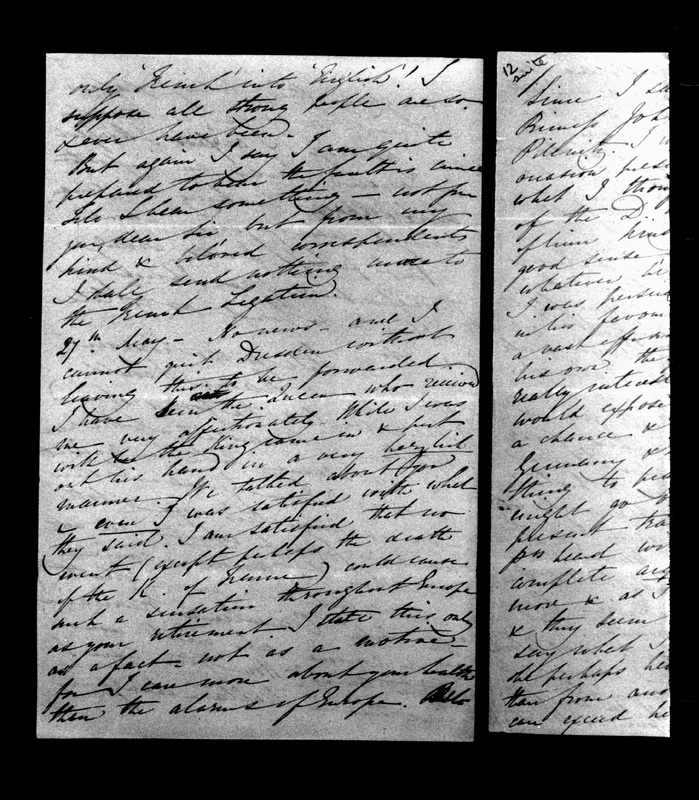 only 'French' into 'English'! I
suppose all strong people are so
& ever have been.
But again I say I am quite
prepared to bear the faults
I hear something — not from
you dear Sir but from my
kind & beloved correspondents
I shall send nothing more to
the French Legation.
27th May — No news — and I
cannot quit Dresden without
leaving this to be forwarded
I have seen the Queen who received
me very affectionately. While I was
with her the King came in & put
out his hand in a very herzlich
manner. We talked about you
& even I was satisfied with what
they said. I am satisfied that no
event (except perhaps the death
of the K. of France) could cause
such a sensation throughout Europe
as your retirement. I state this only
as a fact — not as a motive —
for I care more about your health
than the alarms of Europe.
12
suite
Since I sa
Princess Joh
I w
occasion pres
what I thou
of the D
of him
good sense
whatever he
I was persu
in his favou
a vast
his own the
really interes
would expose
a chance &
Germany &
thing to
might go
present tra
heard wo
complete
more & as I
& they seem
say what h
she perhaps he
than from ano
can exceed he